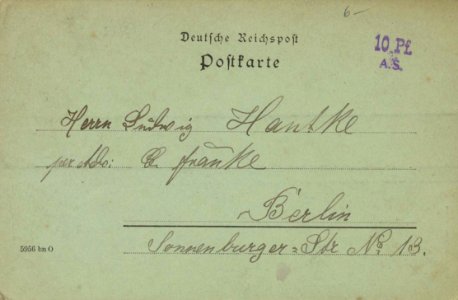 6-
Deutsche Reichspost
Postkarte
10 Pf
A.S.
Herrn Ludwig Hantke
per Adr: E. Franke
Berlin
Sonnenburger-Str No 13.
5956 bm O